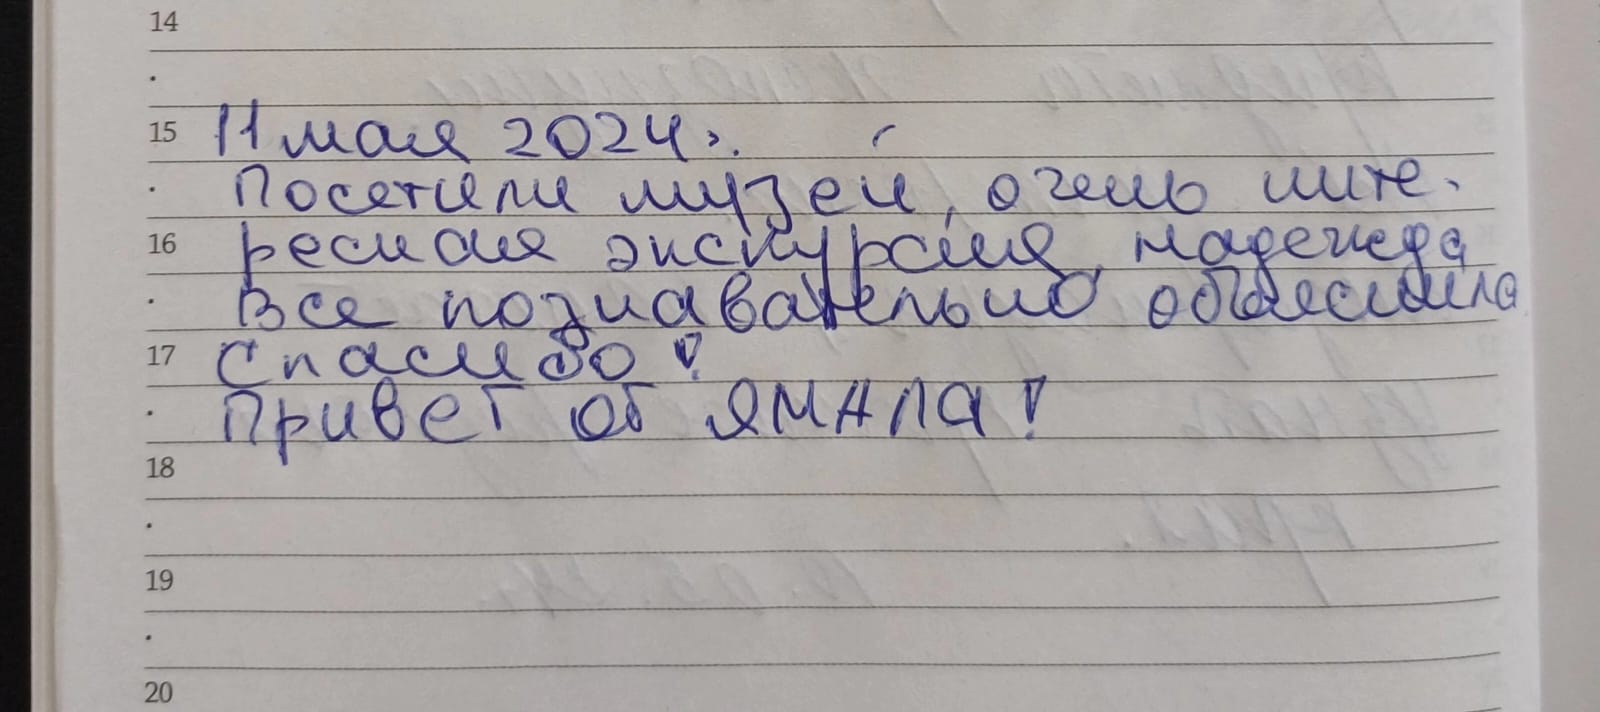 14
15 11 мая 2024г.
Посетили музей, очень инте-
16 ресная экскурсия, надежда
Все познавательно объяснила
17 Спасибо!
Привет от ЯМАЛА!
18
19
20